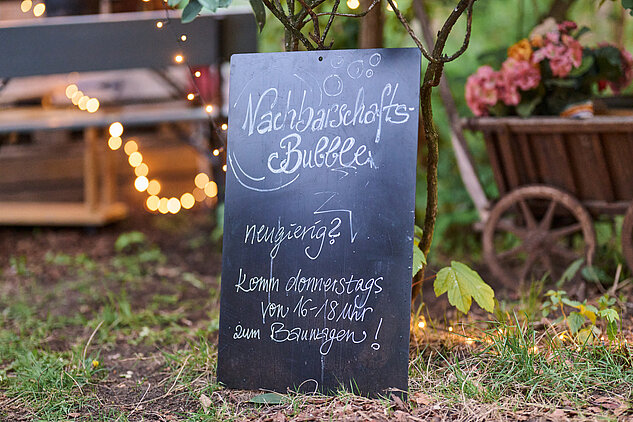 Nachbarschafts-
Bubble
neugierig?
Komm donnerstags
von 16-18 Uhr
zum Bauwagen!